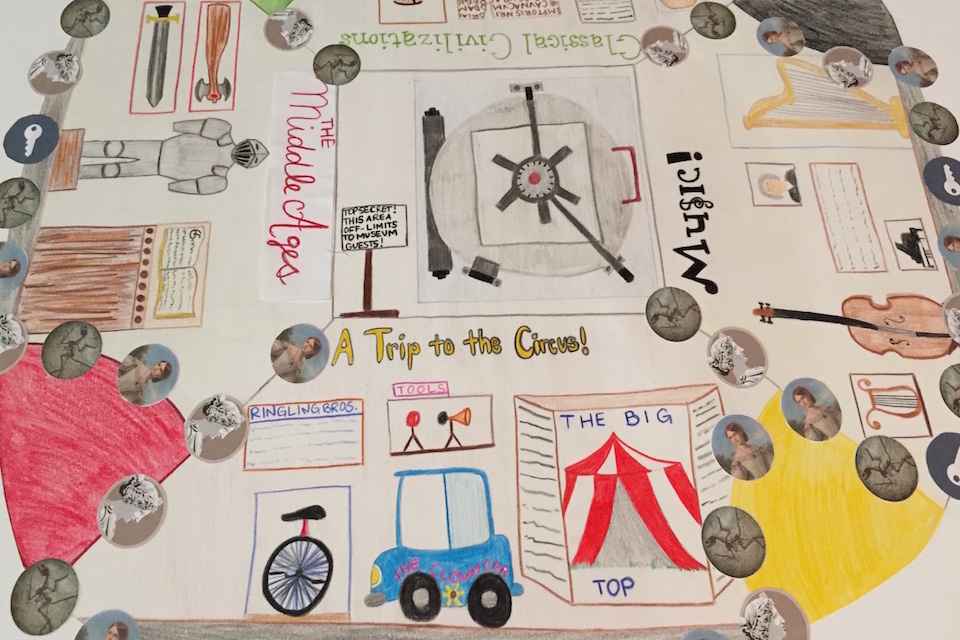 Classical Civilizations
THE
Middle Ages
TOP SECRET!
THIS AREA
OFF-LIMITS
TO MUSEUM
GUESTS!
Music!
A Trip to the Circus!
RINGLING BROS.
TOOLS
THE CLOWN CAR
THE BIG
TOP